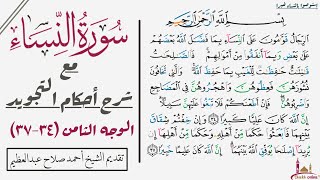 سُورَةُ النِّسَاء
مع
شرح أحكام التجويد
الوجه الثامن (٣٤-٣٧)
تقديم الشيخ أحمد صلاح عبدالعظيم
بِسْمِ اللَّهِ الرَّحْمَٰنِ الرَّحِيمِ
الرِّجَالُ قَوَّامُونَ عَلَى النِّسَاءِ بِمَا فَضَّلَ اللَّهُ
بَعْضَهُمْ عَلَىٰ بَعْضٍ وَبِمَا أَنفَقُوا مِنْ أَمْوَالِهِمْ فَالصَّالِحَاتُ
قَانِتَاتٌ حَافِظَاتٌ لِّلْغَيْبِ بِمَا حَفِظَ اللَّهُ وَالَّاتِي تَخَافُونَ
نُشُوزَهُنَّ فَعِظُوهُنَّ وَاهْجُرُوهُنَّ فِي الْمَضَاجِعِ
وَاضْرِبُوهُنَّ فَإِنْ أَطَعْنَكُمْ فَلَا تَبْغُوا عَلَيْهِنَّ سَبِيلًا
إِنَّ اللَّهَ كَانَ عَلِيًّا كَبِيرًا ٣٤ وَإِنْ خِفْتُمْ شِقَاقَ
بَيْنِهِمَا فَابْعَثُوا حَكَمًا مِّنْ أَهْلِهِ وَحَكَمًا مِّنْ أَهْلِهَا إِن
يُرِيدَا إِصْلَاحًا يُوَفِّقِ اللَّهُ بَيْنَهُمَا إِنَّ اللَّهَ كَانَ عَلِيمًا خَبِيرًا ٣٥